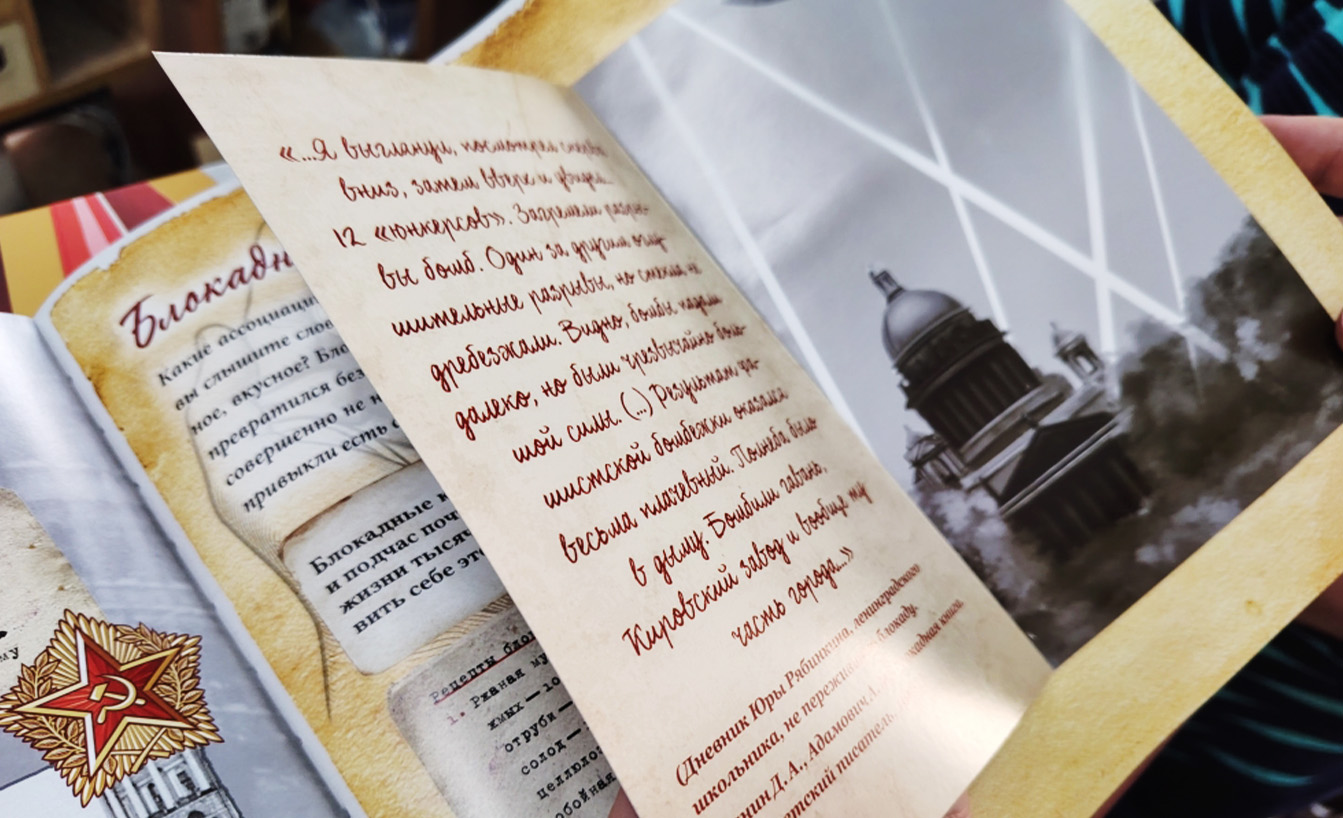 «...Я выглянул, посмотрел сперва
вниз, затем вверх и увидел
12 «юнкерсов». Загремели разры-
вы бомб. Один за другим оглу-
шительные разрывы, но стекла не
дребезжали. Видно, бомбы падали
далеко, но были чрезвычайно боль-
шой силы. (...) Результат фа-
шистской бомбежки оказался
весьма плачевный. Полнеба было
в дыму. Бомбили гавань,
Кировский завод и вообще ту
часть города...»
(Дневник Юры Рябинкина, ленинградского
школьника, не пережившего блокаду.
Д.А., Адамович А.
Блокадн
Какие ассоциации
вы слышите
ное, вкусное?
превратился без
совершенно не
привыкли есть
Блокадные
и подчас
жизни
вить себе
Рецепты
1. Ржаная
жмых — 10
отруби —
солод —